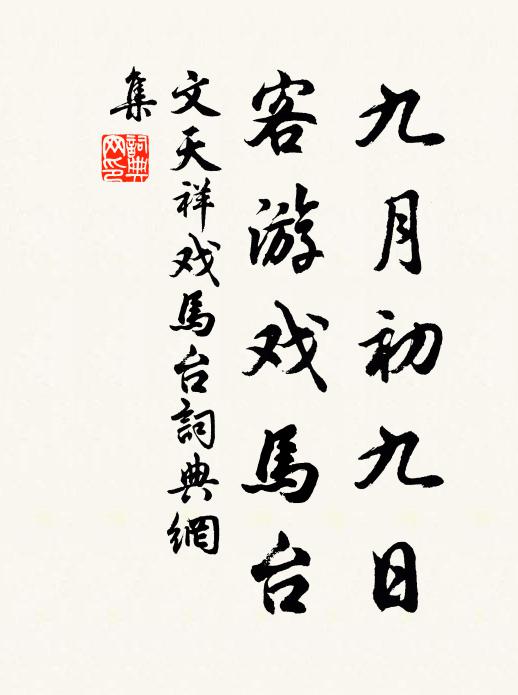 九月初九日
客游戏馬台
文天祥戏馬台詞典網
集
詞典网印